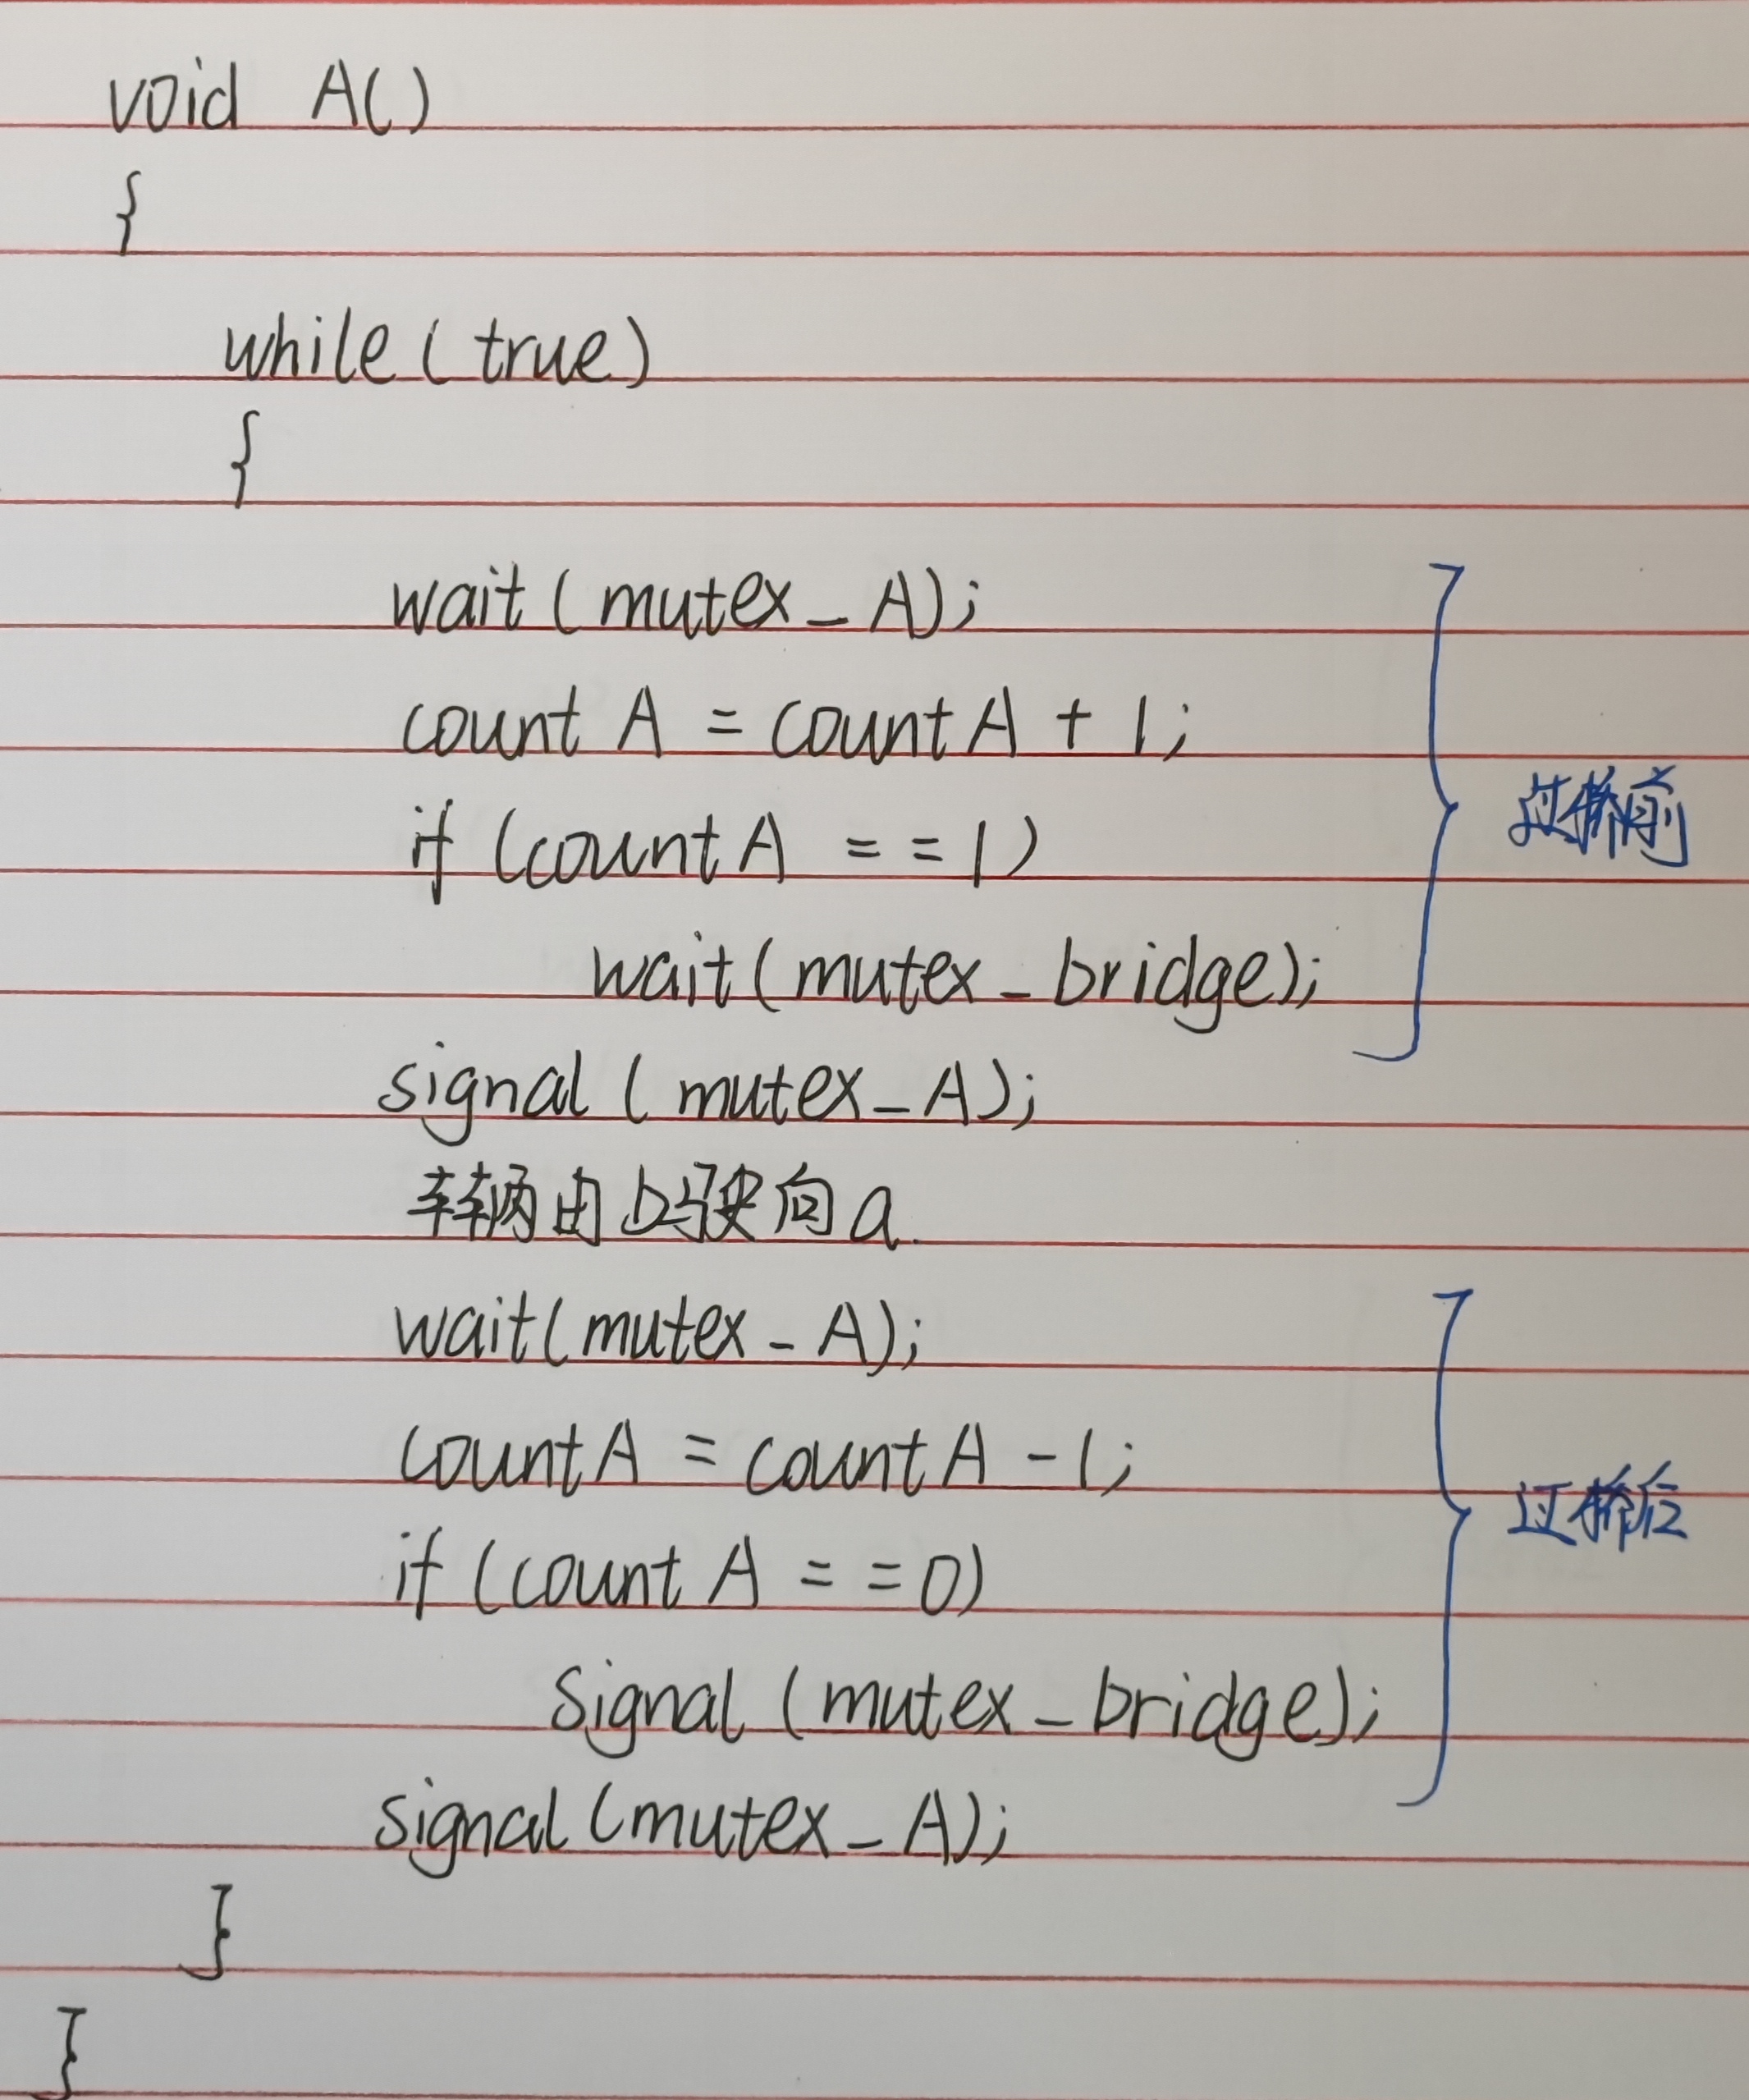 void A()
{
while(true)
{
wait(mutex_A);
countA = countA + 1;
if (countA == 1)
wait(mutex_bridge);
signal(mutex_A);
过桥前
车辆由b驶向a.
wait(mutex_A);
countA = countA - 1;
if (countA == 0)
signal(mutex_bridge);
signal(mutex_A);
过桥后
}
}